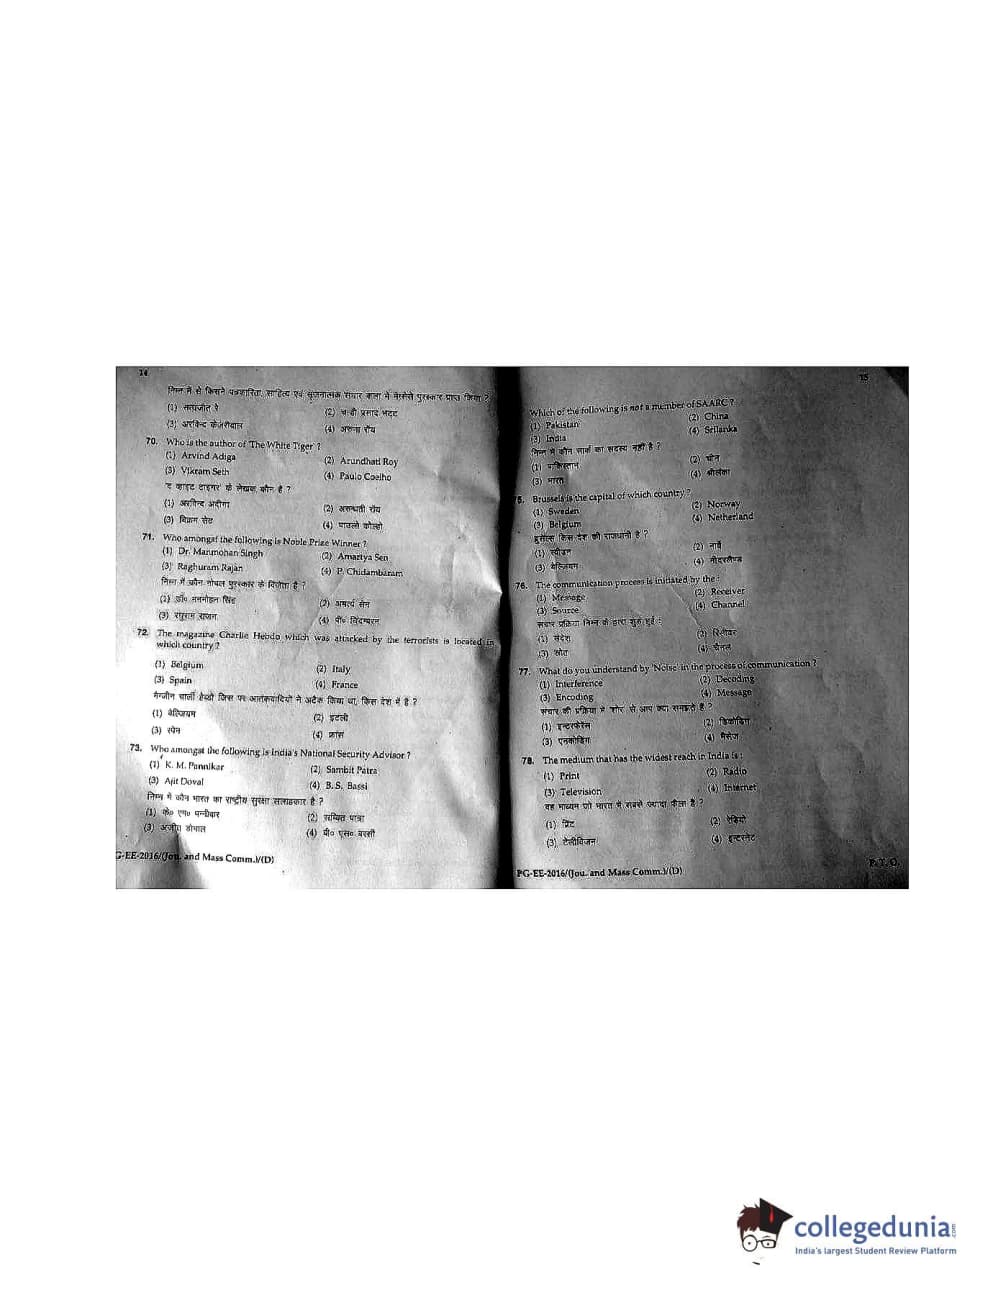 14
निम्न में से किसने पत्रकारिता, साहित्य एवं सृजनात्मक संचार कला में मैगसेसे पुरस्कार प्राप्त किया ?
(1) सत्यजीत रे (2) चन्डी प्रसाद भट्ट
(3) अरविन्द केजरीवाल (4) अरुना रॉय
70. Who is the author of 'The White Tiger' ?
(1) Arvind Adiga (2) Arundhati Roy
(3) Vikram Seth (4) Paulo Coelho
'द व्हाइट टाइगर' के लेखक कौन है ?
(1) अरविन्द अदीगा (2) अरुन्धती रॉय
(3) विक्रम सेठ (4) पाउलो कोल्हो
71. Who amongst the following is Noble Prize Winner ?
(1) Dr. Manmohan Singh (2) Amartya Sen
(3) Raghuram Rajan (4) P. Chidambaram
निम्न में कौन नोबल पुरस्कार के विजेता है ?
(1) डॉ० मनमोहन सिंह (2) अमर्त्य सेन
(3) रघुराम राजन (4) पी० चिदंबरम
72. The magazine Charlie Hebdo which was attacked by the terrorists is located in
which country ?
(1) Belgium (2) Italy
(3) Spain (4) France
मैग्जीन चार्ली हेब्डो जिस पर आतंकवादियों ने अटैक किया था, किस देश में है ?
(1) बेल्जियम (2) इटली
(3) स्पेन (4) फ्रांस
73. Who amongst the following is India's National Security Advisor ?
(1) K. M. Pannikar (2) Sambit Patra
(3) Ajit Doval (4) B.S. Bassi
निम्न में कौन भारत का राष्ट्रीय सुरक्षा सलाहकार है ?
(1) के० एम० पन्नीकर (2) सम्बित पात्रा
(3) अजीत डोभाल (4) बी० एस० बस्सी
G-EE-2016/(Jou. and Mass Comm.)/(D)
15
Which of the following is not a member of SAARC ?
(1) Pakistan (2) China
(3) India (4) Srilanka
निम्न में कौन सार्क का सदस्य नहीं है ?
(1) पाकिस्तान (2) चीन
(3) भारत (4) श्रीलंका
5. Brussels is the capital of which country ?
(1) Sweden (2) Norway
(3) Belgium (4) Netherland
ब्रुसेल्स किस देश की राजधानी है ?
(1) स्वीडन (2) नार्वे
(3) बेल्जियम (4) नीदरलैण्ड
76. The communication process is initiated by the :
(1) Message (2) Receiver
(3) Source (4) Channel
संचार प्रक्रिया निम्न के द्वारा शुरू हुई :
(1) संदेश (2) रिसीवर
(3) स्रोत (4) चैनल
77. What do you understand by 'Noise' in the process of communication ?
(1) Interference (2) Decoding
(3) Encoding (4) Message
संचार की प्रक्रिया में 'शोर' से आप क्या समझते हैं ?
(1) इन्टरफेरेंस (2) डिकोडिंग
(3) एनकोडिंग (4) मैसेज
78. The medium that has the widest reach in India is :
(1) Print (2) Radio
(3) Television (4) Internet
वह माध्यम जो भारत में सबसे ज्यादा फैला है ?
(1) प्रिंट (2) रेडियो
(3) टेलीविजन (4) इन्टरनेट
PG-EE-2016/(Jou. and Mass Comm.)/(D)
P. T. O.
collegedunia.com
India's largest Student Review Platform